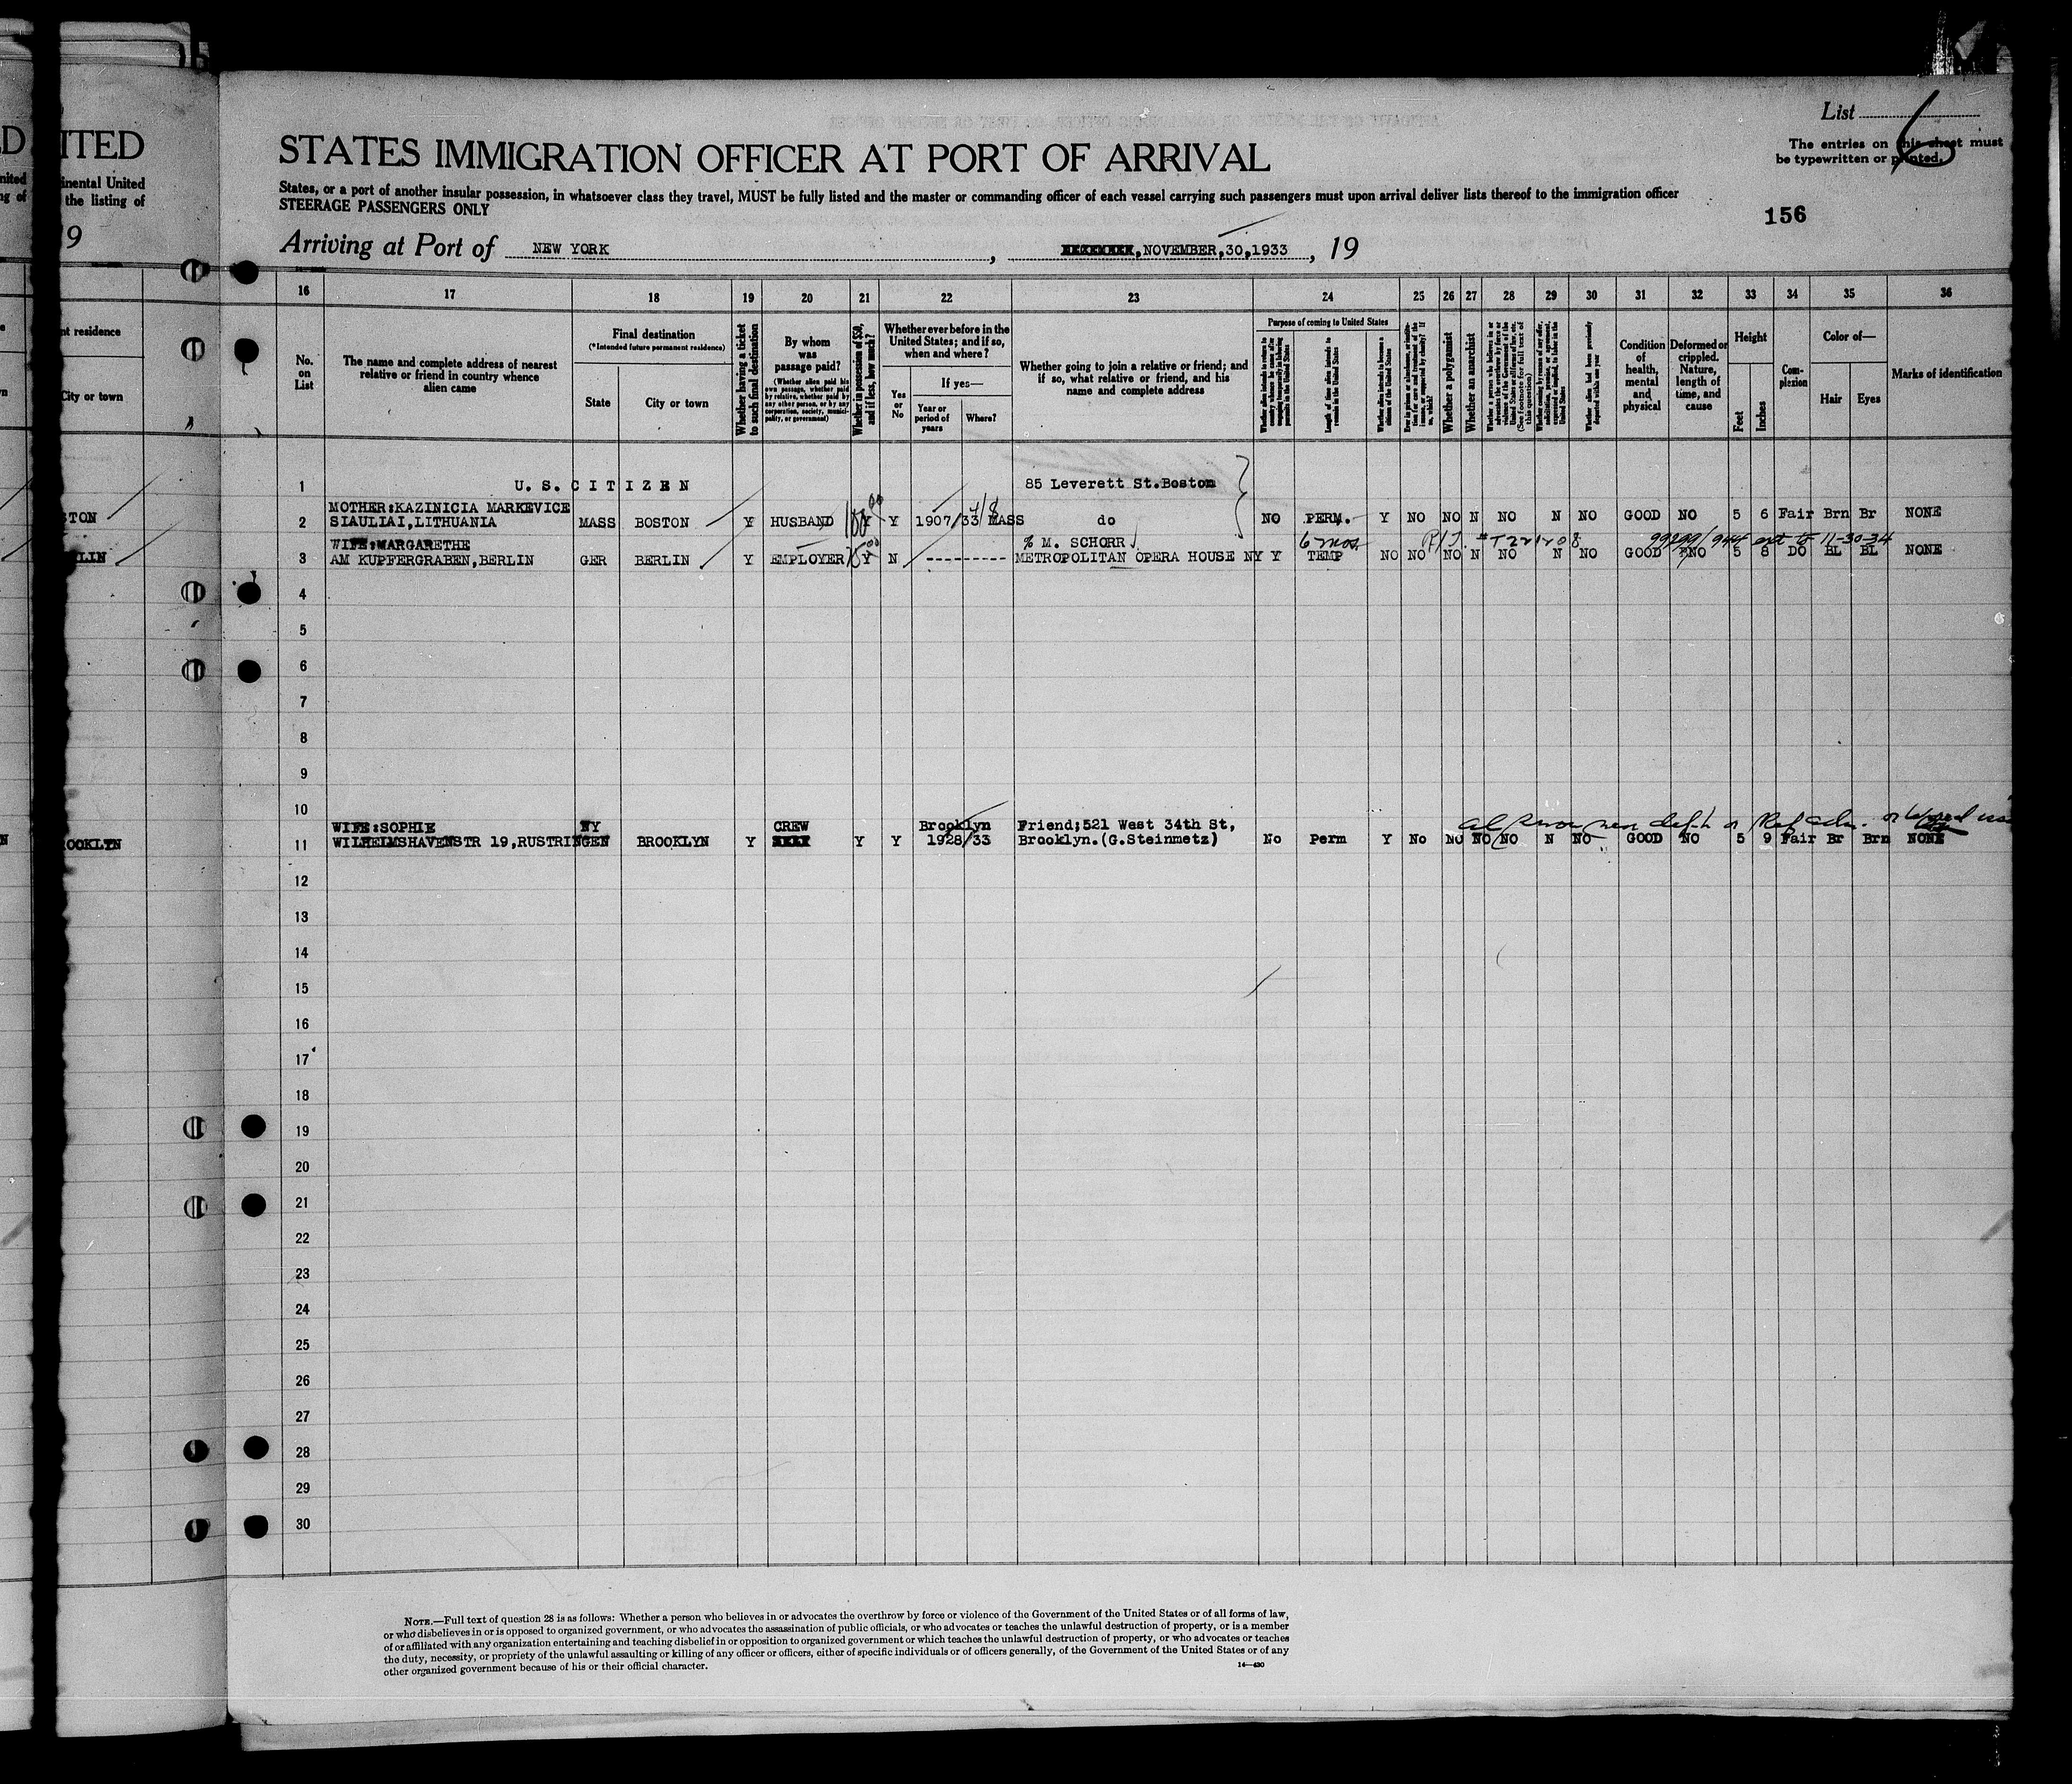 D
ITED
nited
inental United
ng of
the listing of
19
List
6
The entries on this sheet must
be typewritten or printed.
STATES IMMIGRATION OFFICER AT PORT OF ARRIVAL
States, or a port of another insular possession, in whatsoever class they travel, MUST be fully listed and the master or commanding officer of each vessel carrying such passengers must upon arrival deliver lists thereof to the immigration officer
STEERAGE PASSENGERS ONLY
156
Arriving at Port of NEW YORK , , NOVEMBER,30,1933 , 19
16 17 18 19 20 21 22 23 24 25 26 27 28 29 30 31 32 33 34 35 36
nt residence
City or town
No. on List
The name and complete address of nearest relative or friend in country whence alien came
Final destination
(*Intended future permanent residence)
State
City or town
Whether having a ticket to such final destination
By whom was passage paid?
(Whether alien paid his own passage, whether paid by relative, whether paid by any other person, or by any corporation, society, municipality, or government)
Whether in possession of $50, and if less, how much?
Whether ever before in the United States; and if so, when and where?
Yes or No
If yes—
Year or period of years
Where?
Whether going to join a relative or friend; and if so, what relative or friend, and his name and complete address
Purpose of coming to United States
Whether alien intends to return to country whence he came after engaging temporarily in laboring pursuits in the United States
Length of time alien intends to remain in the United States
Whether alien intends to become a citizen of the United States
Whether a polygamist
Whether an anarchist
Whether alien had been previously deported within one year
Condition of health, mental and physical
Deformed or crippled. Nature, length of time, and cause
Height
Feet
Inches
Complexion
Color of—
Hair
Eyes
Marks of identification
1 U. S. C I T I Z E N 85 Leverett St.Boston
MOTHER:KAZINICIA MARKEVICE
TON
2 SIAULIAI,LITHUANIA MASS BOSTON Y HUSBAND Y Y 1907/33 MASS do NO PERM. Y NO NO N NO N NO GOOD NO 5 6 Fair Brn Br NONE
WIFE:MARGARETHE % M. SCHORR 6 mos. 99299/944 ext to 11-30-34
LIN
3 AM KUPFERGRABEN,BERLIN GER BERLIN Y EMPLOYER Y N ---------- METROPOLITAN OPERA HOUSE NY Y TEMP NO NO NO N NO N NO GOOD NO 5 8 DO BL BL NONE
4
5
6
7
8
9
10
WIFE:SOPHIE NY CREW Brooklyn Friend;521 West 34th St,
OOKLYN
11 WILHELMSHAVENSTR 19,RUSTRINGEN BROOKLYN Y Y Y 1928/33 Brooklyn.(G.Steinmetz) No Perm Y No NO NO NO N NO GOOD NO 5 9 Fair Br Brn NONE
12
13
14
15
16
17
18
19
20
21
22
23
24
25
26
27
28
29
30
NOTE.—Full text of question 28 is as follows: Whether a person who believes in or advocates the overthrow by force or violence of the Government of the United States or of all forms of law,
or who disbelieves in or is opposed to organized government, or who advocates the assassination of public officials, or who advocates or teaches the unlawful destruction of property, or is a member
of or affiliated with any organization entertaining and teaching disbelief in or opposition to organized government or which teaches the unlawful destruction of property, or who advocates or teaches
the duty, necessity, or propriety of the unlawful assaulting or killing of any officer or officers, either of specific individuals or of officers generally, of the Government of the United States or of any
other organized government because of his or their official character.
14—430